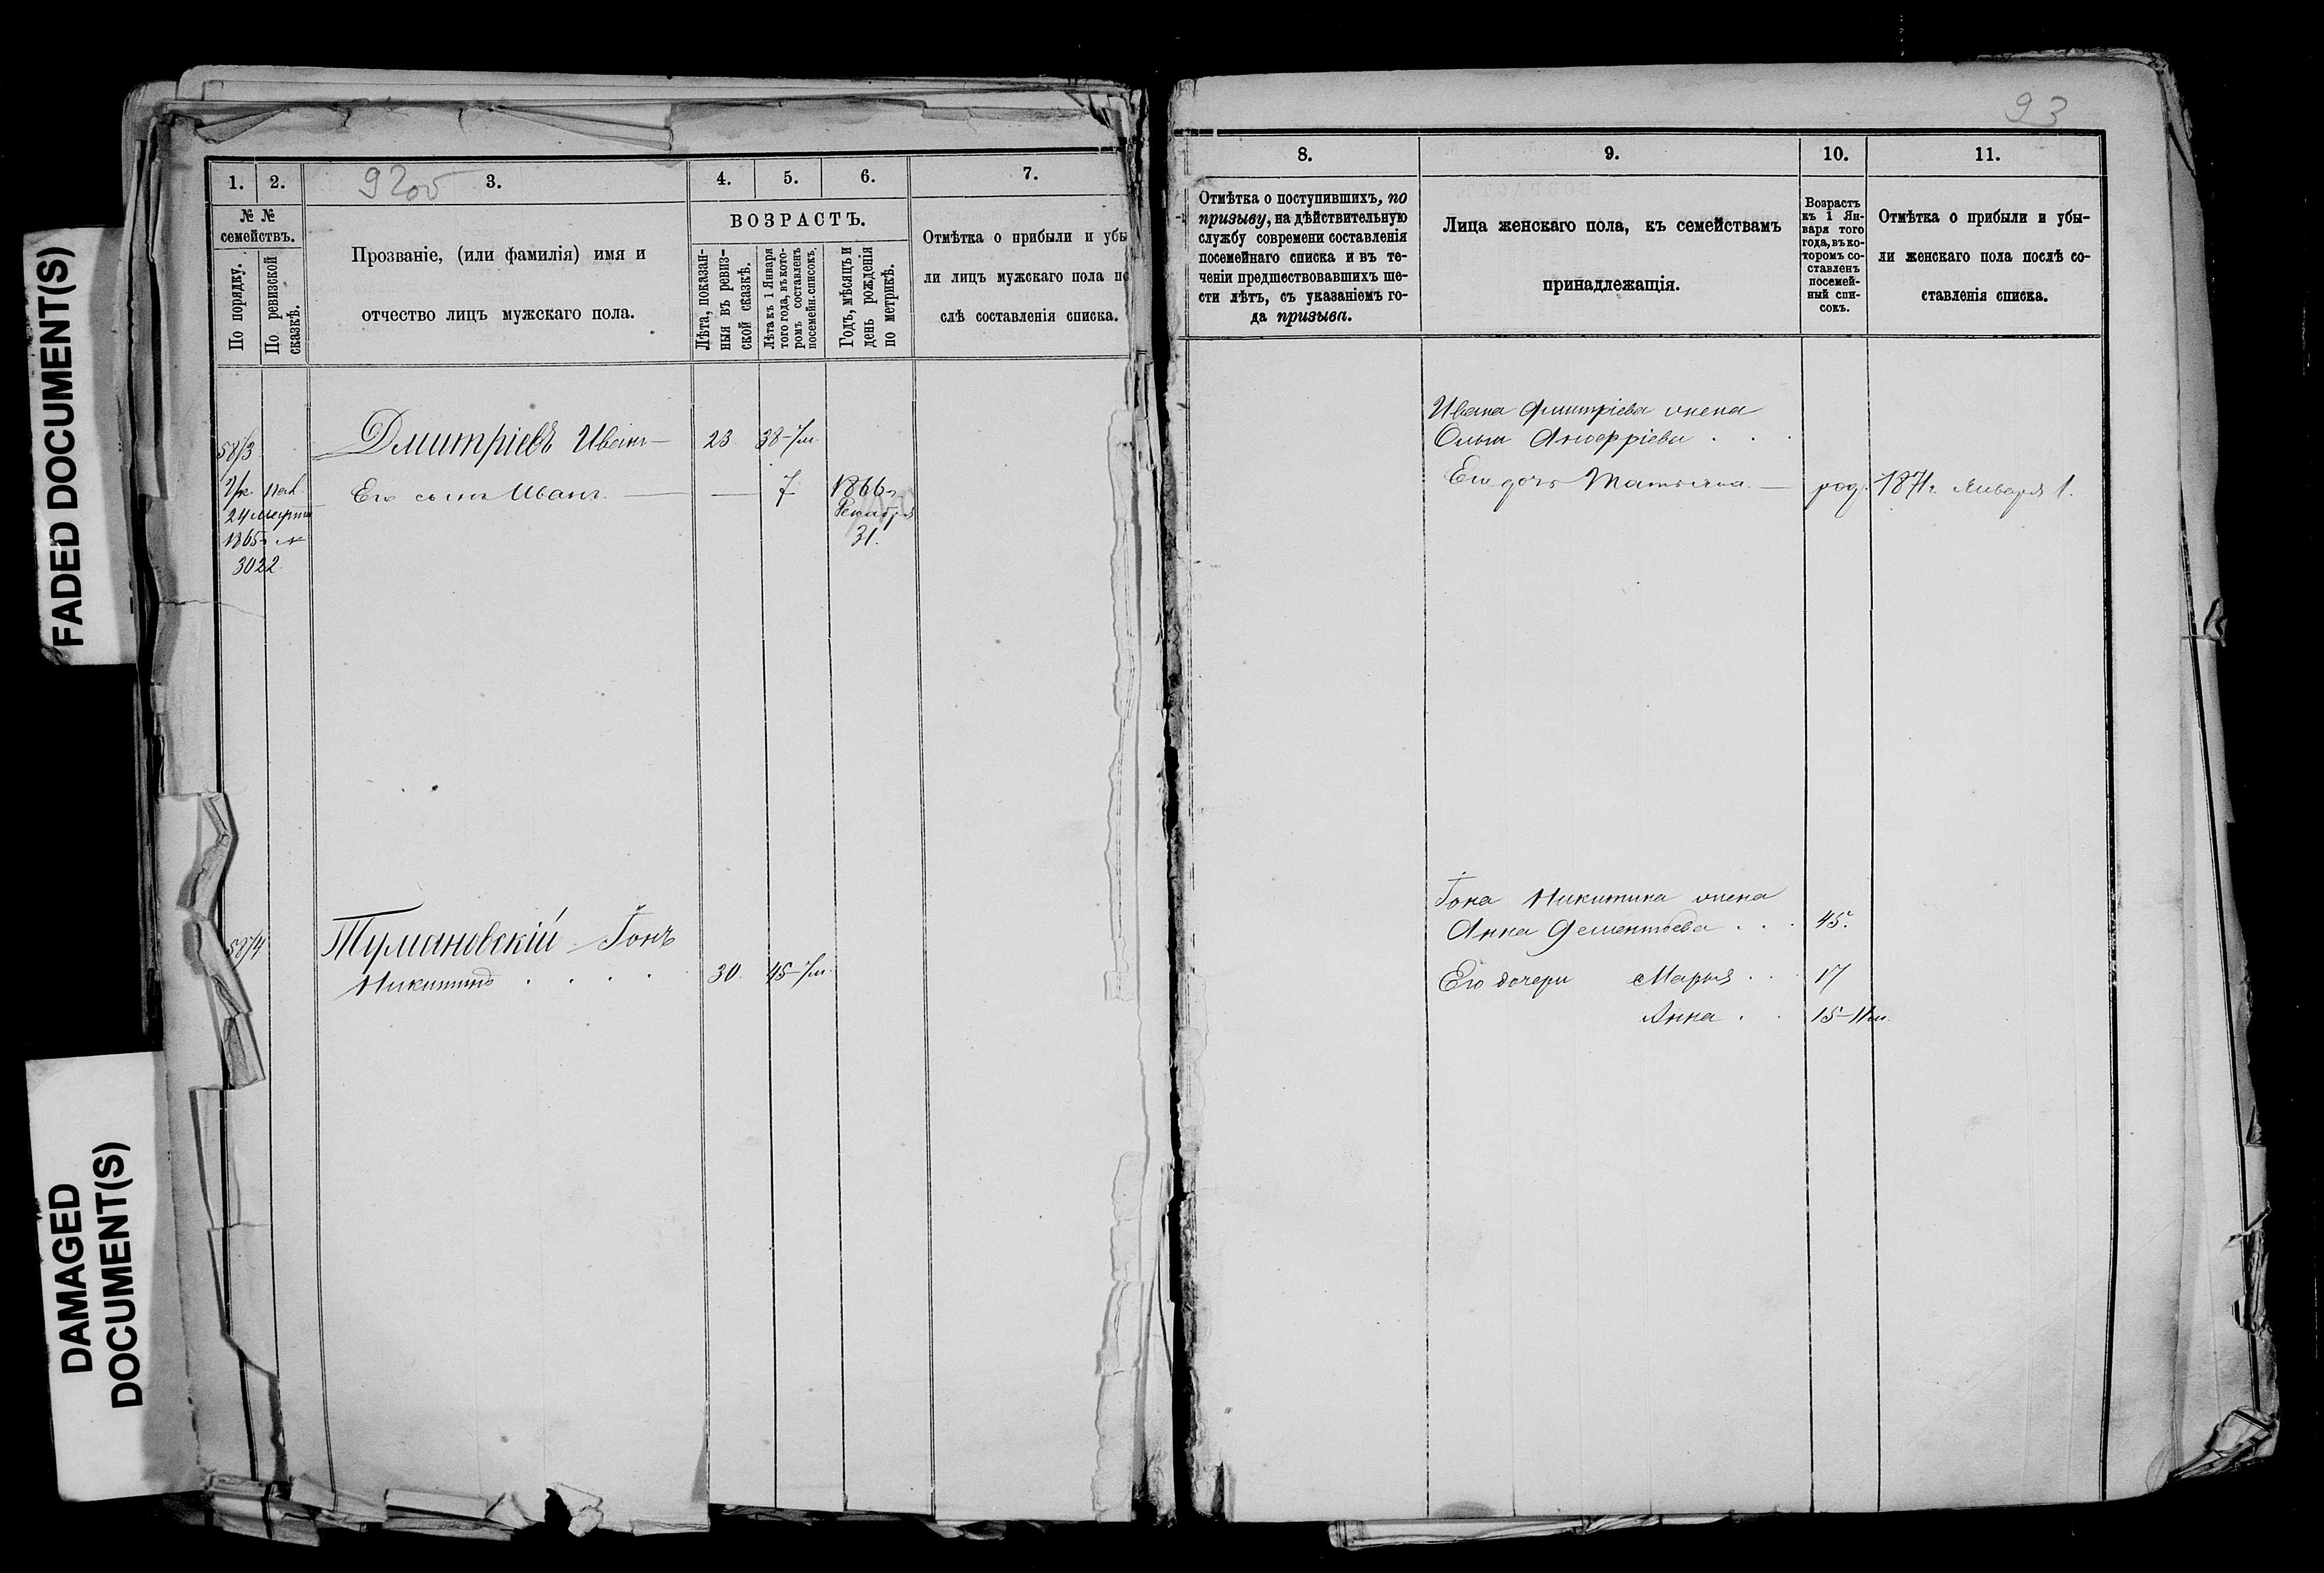 FADED DOCUMENT(S)
DAMAGED
DOCUMENT(S)
92об
1. 2. 3. 4. 5. 6. 7.
№ №
семействъ.
По порядку.
По ревизской
сказкѣ.
Прозваніе, (или фамилія) имя и
отчество лицъ мужскаго пола.
ВОЗРАСТЪ.
Лѣта, показан-
ныя въ ревиз-
ской сказкѣ.
Лѣта къ 1 Января
того года, въ кото-
ромъ составленъ
посемейн. списокъ.
Годъ, мѣсяцъ и
день рожденія
по метрикѣ.
Отмѣтка о прибыли и убы
ли лицъ мужскаго пола по
слѣ составленія списка.
58/3 Дмитріевъ Иванъ 23 38-7м.
Его сынъ Иванъ. 7 1866г.
24 Марта Декабря
1865 31.
3022
58/4 Тумановскій Іонъ
Никитинъ 30. 45-7м.
93
8. 9. 10. 11.
Отмѣтка о поступившихъ, по
призыву, на дѣйствительную
службу современи составленія
посемейнаго списка и въ те-
ченіи предшествовавшихъ ше-
сти лѣтъ, съ указаніемъ го-
да призыва.
Лица женскаго пола, къ семействамъ
принадлежащія.
Возрастъ
къ 1 Ян-
варя того
года, въ ко-
торомъ со-
ставленъ
посемей-
ный спи-
сокъ.
Отмѣтка о прибыли и убы-
ли женскаго пола послѣ со-
ставленія списка.
Ивана Дмитріева жена
Ольга
Его дочь Татьяна. род. 1871г. Января 1.
Іона Никитина жена
Анна Дементьева 45.
Его дочери Марья 17
Анна 15-11м.